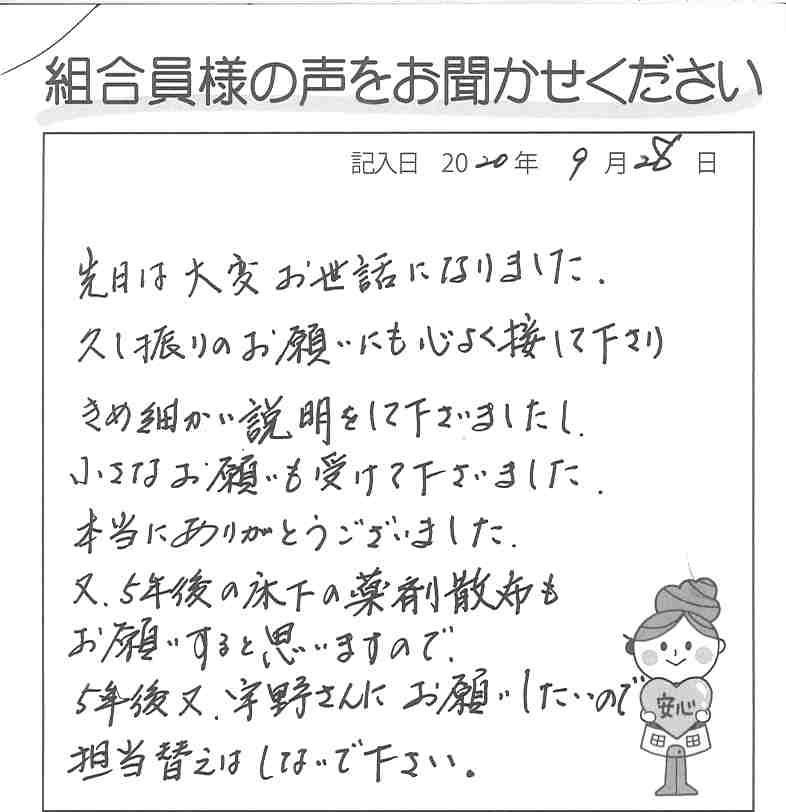 組合員様の声をお聞かせください
記入日 2020年 9月28日
先日は大変お世話になりました.
久し振りのお願いにも心よく接して下さり
きめ細かい説明をして下さいましたし.
小さなお願いも受けて下さいました.
本当にありがとうございました.
又.5年後の床下の薬剤散布も
お願いすると思いますので.
5年後又.宇野さんにお願いしたいので
担当替えはしないで下さい。
安心